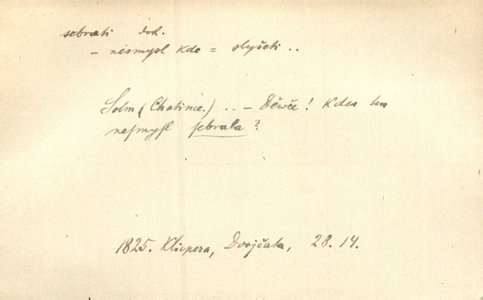 sebrati dok.
– nesmysl kde = slyšeti ..
Solm (Chatince.) .. – Děvče! Kdes ten
nesmysl sebrala?
1825. Klicpera, Dvojčata, 28. 14.